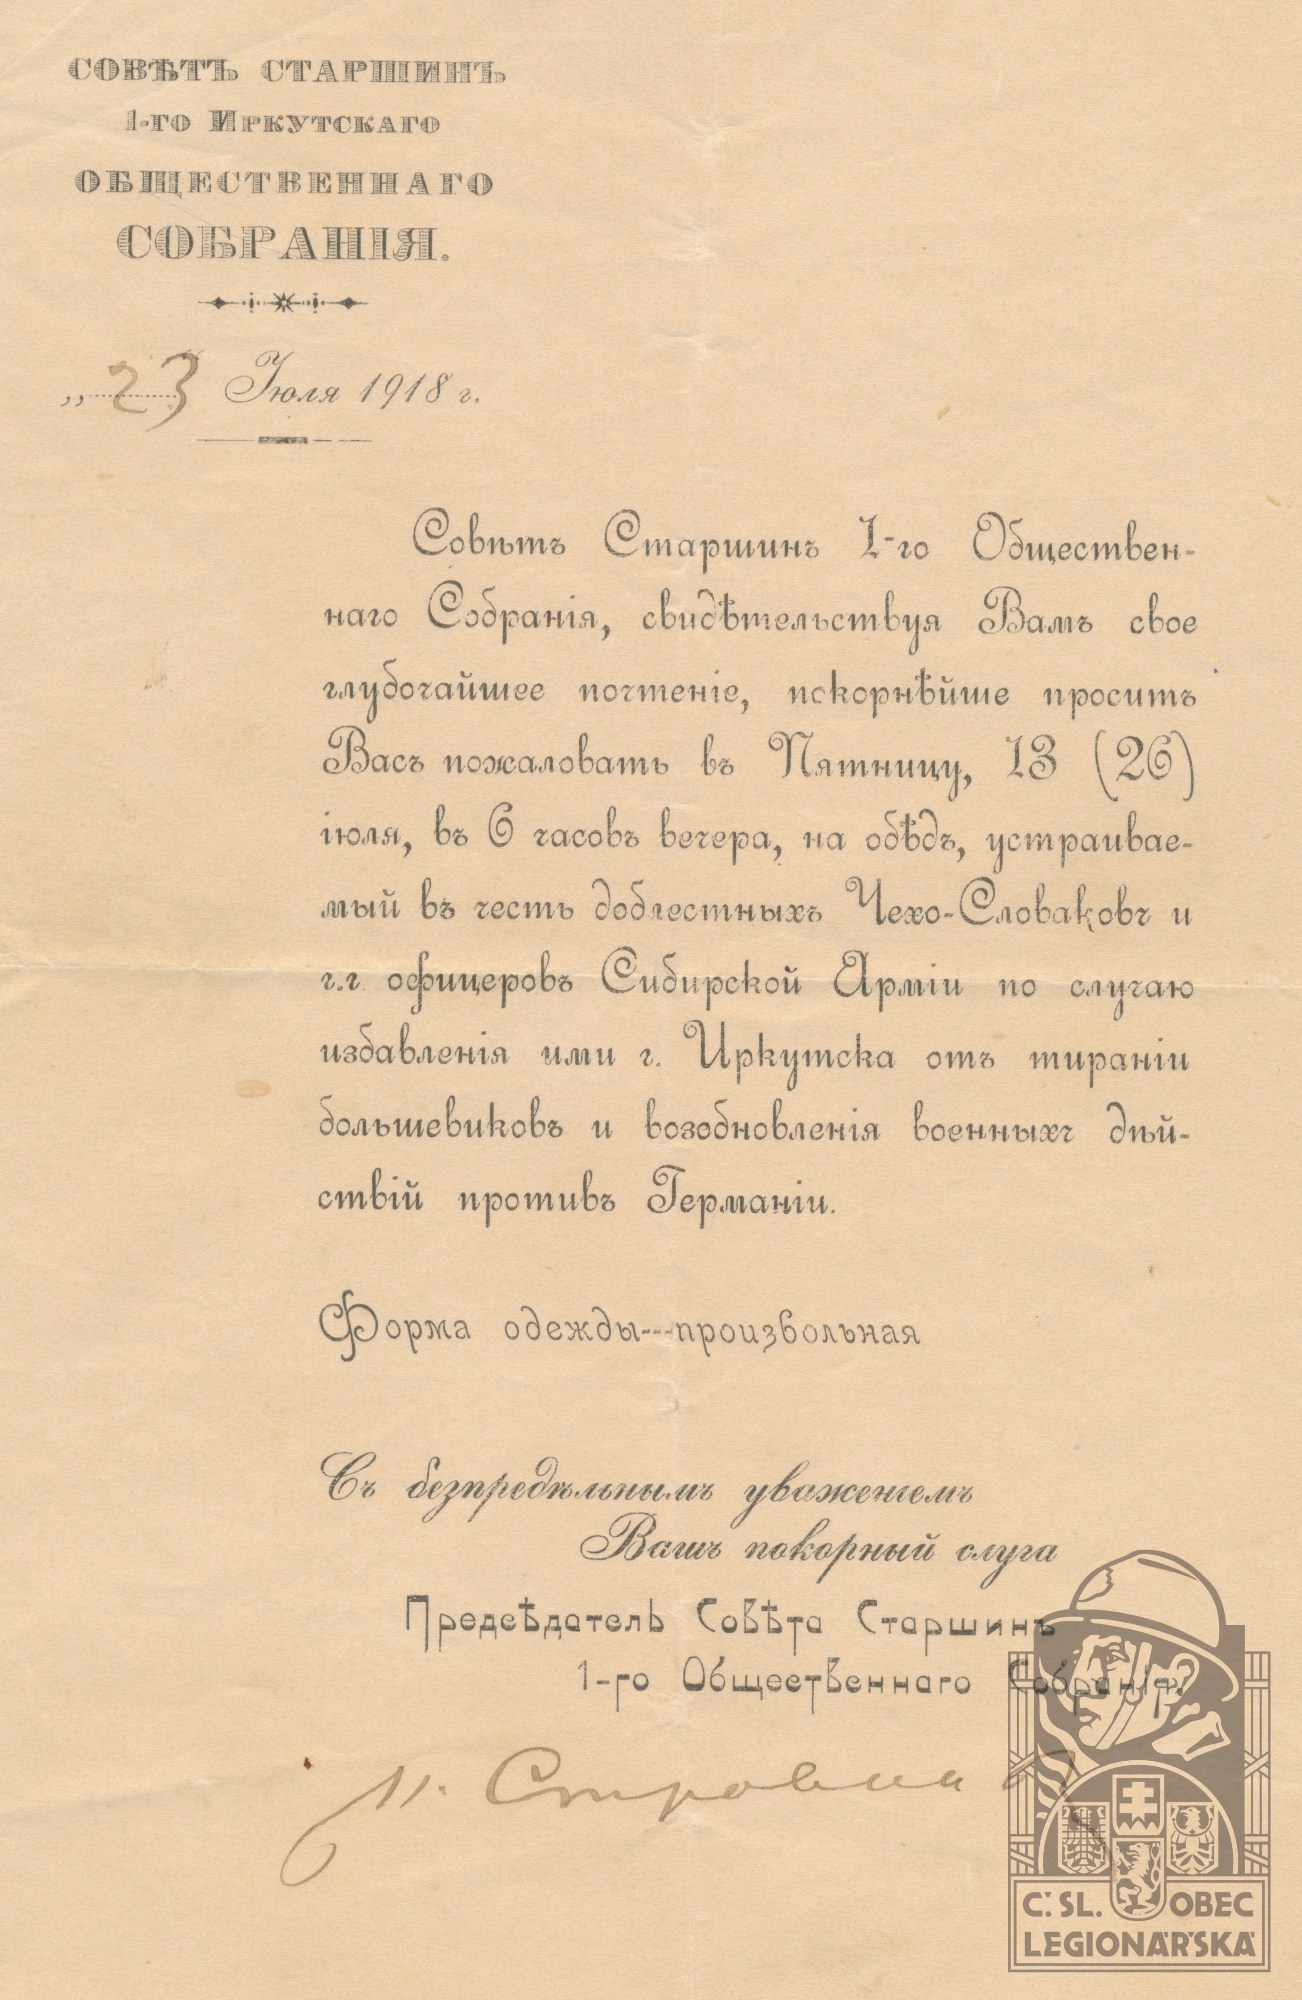 СОВѢТЪ СТАРШИНЪ
1-го Иркутскаго
ОБЩЕСТВЕННАГО
СОБРАНІЯ.
„23 Іюля 1918 г.
Совѣтъ Старшинъ 1-го Общественнаго
наго Собранія, свидѣтельствуя Вамъ свое
глубочайшее почтеніе, покорнѣйше проситъ
Васъ пожаловать въ Пятницу, 13 (26)
іюля, въ 6 часовъ вечера, на обѣдъ, устраивае-
мый въ честь доблестныхъ Чехо-Словаковъ и
г.г. офицеровъ Сибирской Арміи по случаю
избавленія ими г. Иркутска отъ тираніи
большевиковъ и возобновленія военныхъ дѣй-
ствій противъ Германіи.
Форма одежды---произвольная
Съ безпредѣльнымъ уваженіемъ
Вашъ покорный слуга
Предсѣдатель Совѣта Старшинъ
1-го Общественнаго Собранія
Č. SL. OBEC
LEGIONÁŘSKÁ